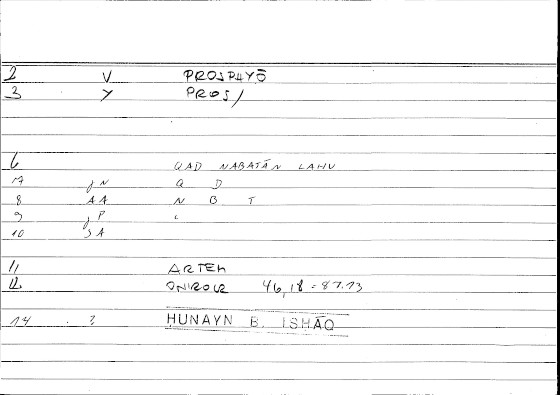 2 V PROSPHYŌ
3 Y PROS/
6 QAD NABATĀN LAHU
7 JN Q D
8 AA N B T
9 JP L
10 JA
11 ARTEM
12 ONIROCR 46,18 = 87.13
14 ? HUNAYN B. ISHĀQ